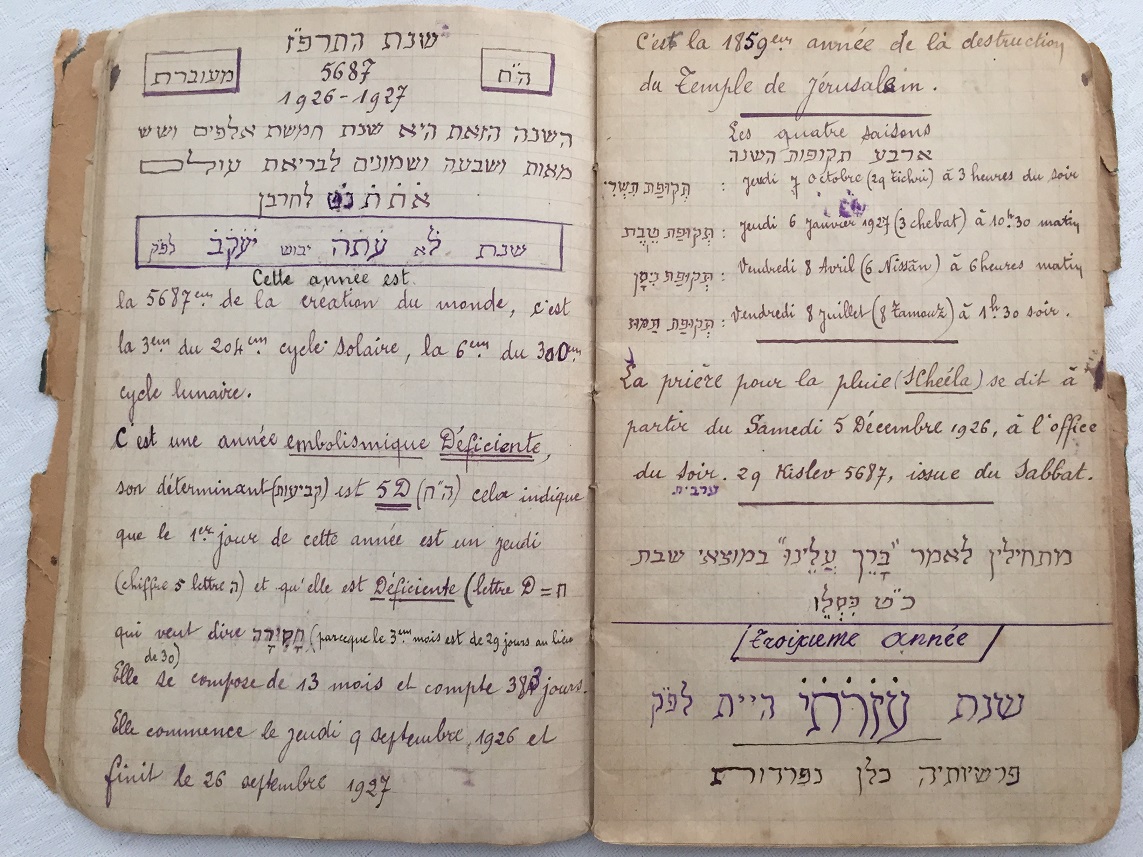 שנת התרפ״ז
מעוברת 5687 ה״ח
1926-1927
השנה הזאת היא שנת חמשת אלפים ושש
מאות ושבעה ושמונים לבריאת עולם
לחרבן
שנת לא עתה יבוש יעקב לפק
Cette année est
la 5687ᵉᵐ de la création du monde, c'est
la 3ᵉᵐ du 204ᵉᵐ cycle Solaire, la 6ᵉᵐ du 300ᵉᵐ
cycle lunaire.
C'est une année embolismique Déficiente,
son déterminant (קביעות) est 5D (ה״ח) cela indique
que le 1ᵉʳ jour de cette année est un jeudi
(chiffre 5 lettre ה) et qu'elle est Déficiente (lettre D = ח
qui veut dire חֲסֵירָה (parceque le 3ᵉᵐ mois est de 29 jours au lieu
de 30)
Elle se compose de 13 mois et compte 383 jours.
Elle commence le jeudi 9 septembre, 1926 et
finit le 26 septembre 1927
C'est la 1859ᵉᵐ année de la destruction
du Temple de Jérusalem.
Les quatre saisons
ארבע תקופות השנה
תְקוּפַת תִשְרִי : jeudi 7 Octobre (29 tichri) à 3 heures du soir
תְקוּפַת טֵבֵת : jeudi 6 janvier 1927 (3 chebat) à 10ʰ30 matin
תְקוּפַת נִיסָן : Vendredi 8 Avril (6 Nissan) à 6 heures matin
תְקוּפַת תַמוּז : Vendredi 8 juillet (8 Tamouz) à 1ʰ30 soir.
La prière pour la pluie (SCheéla) se dit à
partir du Samedi 5 Décembre 1926, à l'office
du Soir. 29 Kislev 5687, issue du Sabbat.
ערבית
מתחילין לאמר "בָרֵך עֲלֵינוּ" במוצאי שבת
כ״ט כִסְלֵו
troixieme année
שנת עֶזְרָתִי היית לפק
פרשיותיה כלן נפרדות